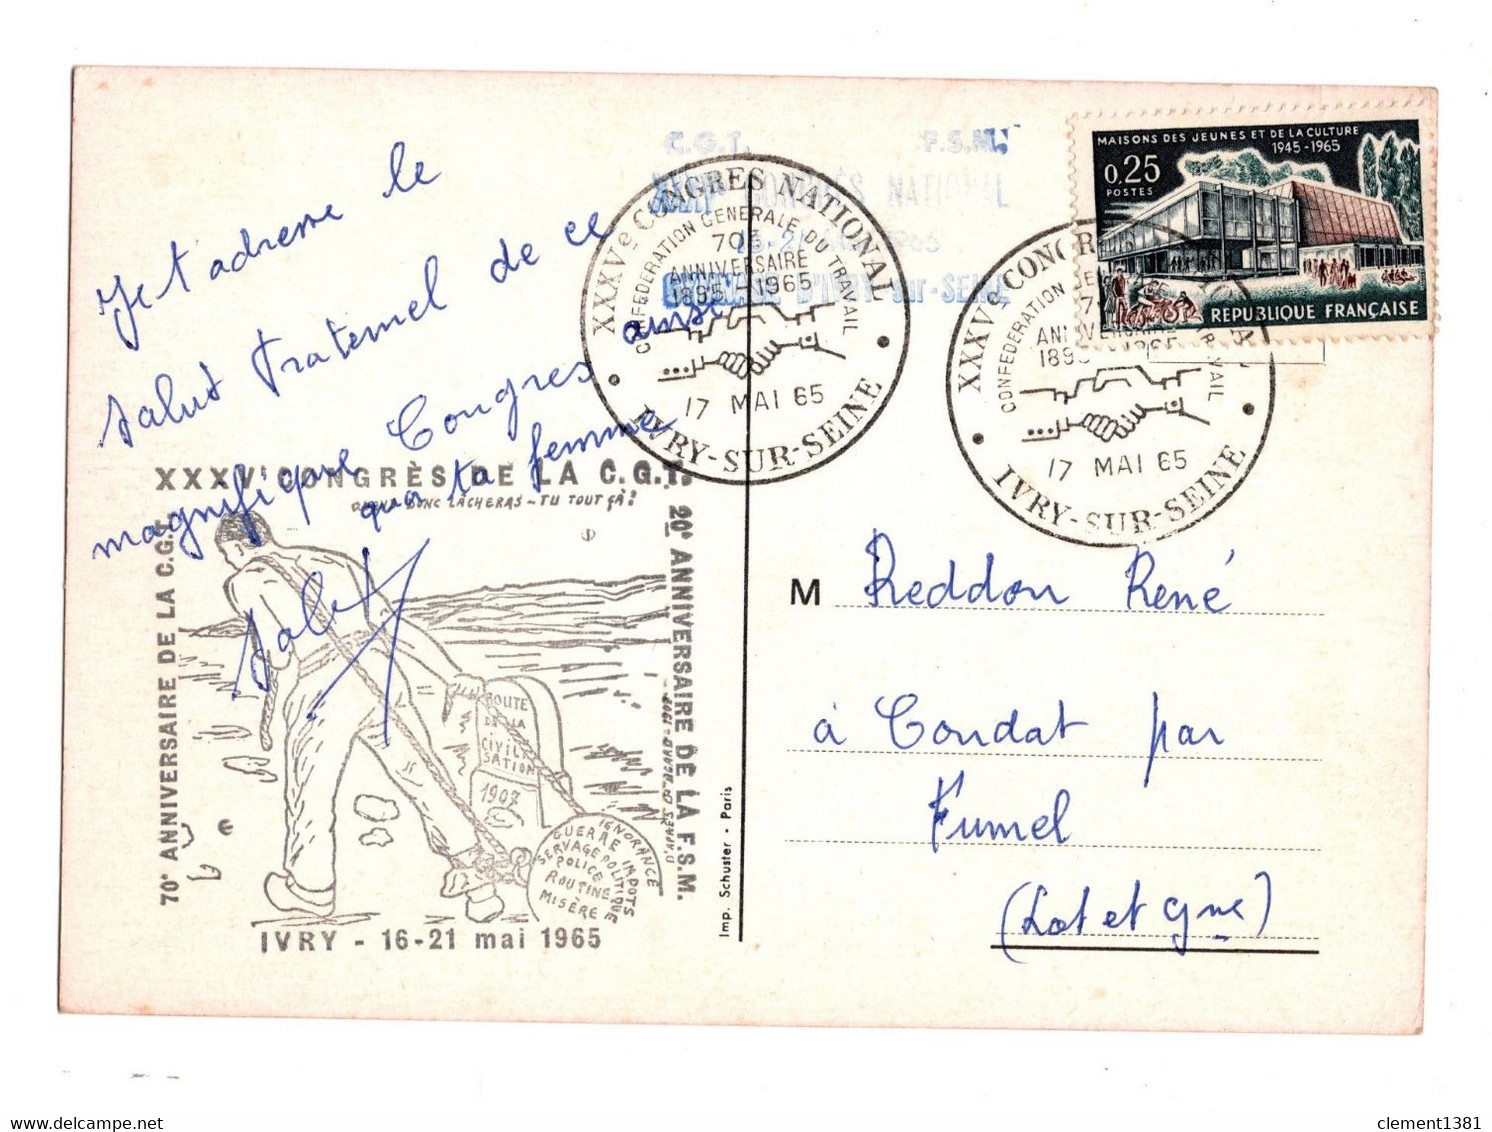 Je t'adresse le
salut fraternel de ce
magnifique Congres ainsi
que ta femme
Salut
XXXVᵉ CONGRÈS DE LA C.G.T.
QUAND DONC LÂCHERAS-TU TOUT ÇÀ?
70ᵉ ANNIVERSAIRE DE LA C.G.T.
20ᵉ ANNIVERSAIRE DE LA F.S.M.
ROUTE
DE LA
CIVILI
SATION
1907
IGNORANCE
GUERRE IMPOTS
SERVAGE POLITIQUE
POLICE
ROUTINE
MISÈRE
IVRY - 16-21 mai 1965
Imp. Schuster - Paris
C.G.T. F.S.M.
CONGRÈS NATIONAL
IVRY-sur-SEINE
XXXVᵉ CONGRES NATIONAL
CONFEDERATION GENERALE DU TRAVAIL
70ᵉ
ANNIVERSAIRE
1895-1965
17 MAI 65
IVRY-SUR-SEINE
MAISONS DES JEUNES ET DE LA CULTURE
1945-1965
0,25
POSTES
REPUBLIQUE FRANÇAISE
XXXVᵉ CONGR
CONFEDERATION
17 MAI 65
IVRY-SUR-SEINE
M Reddon René
à Condat par
Fumel
(Lot et Gne)
clement1381